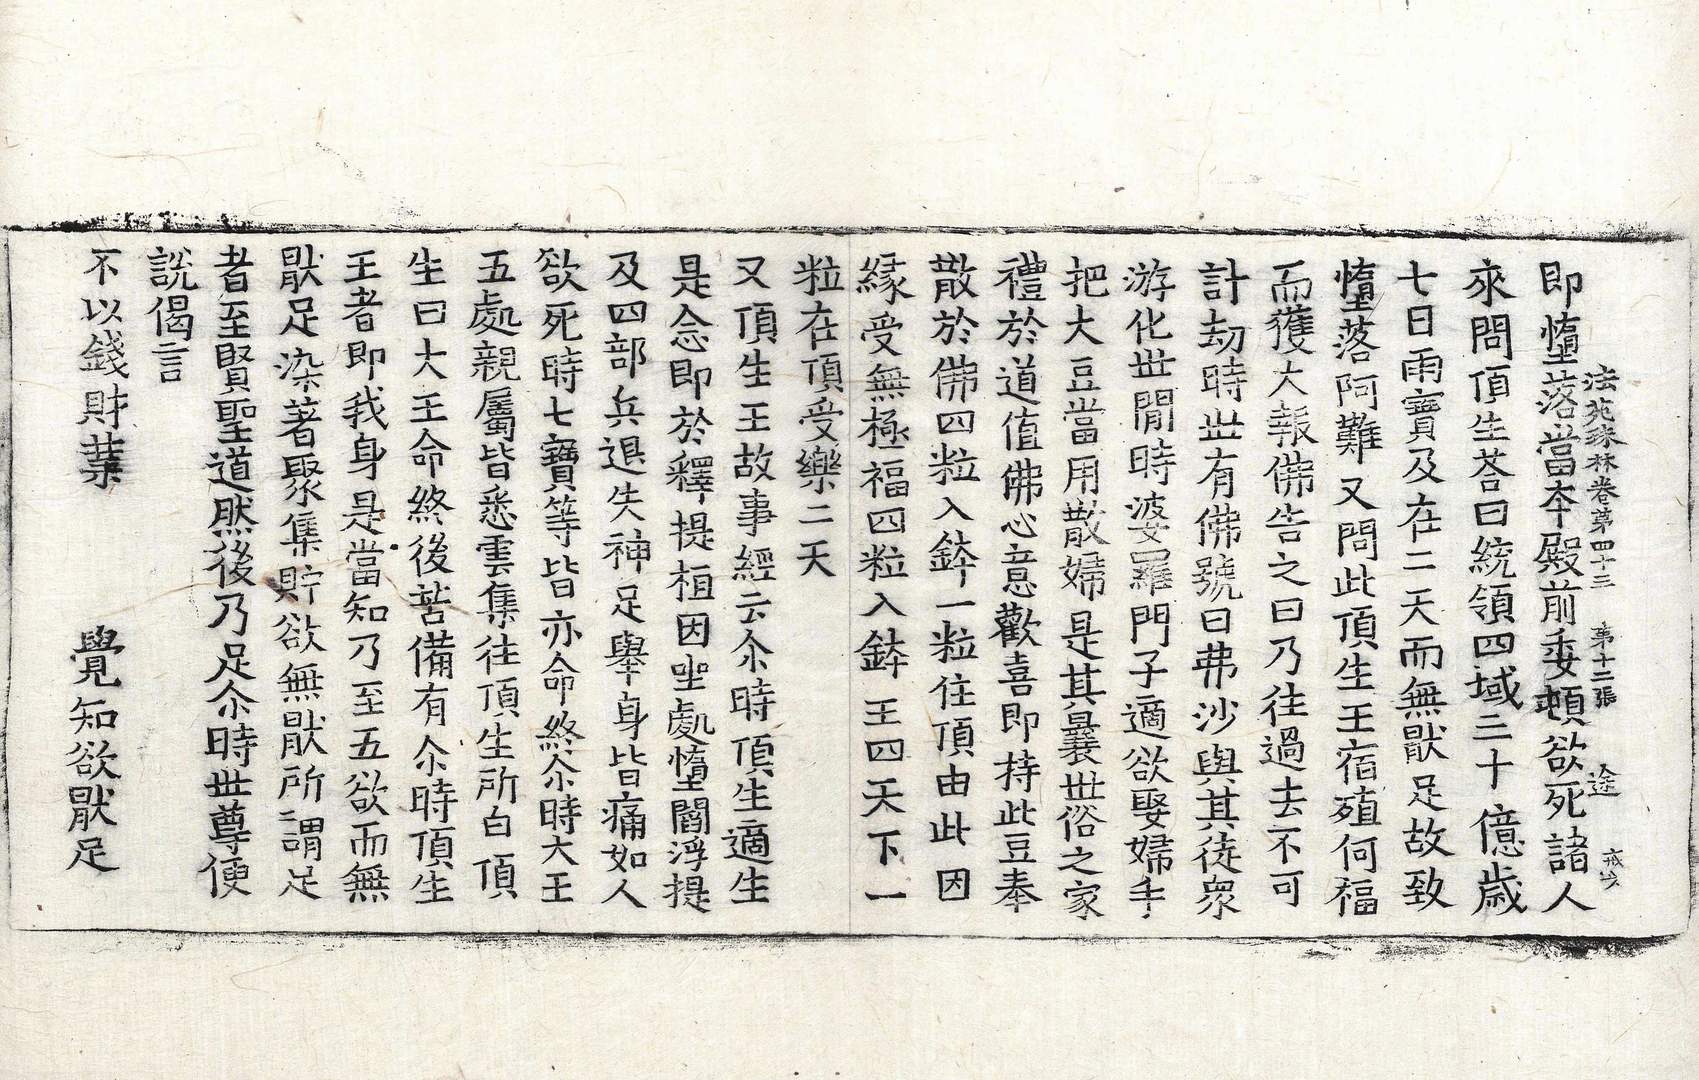 法苑珠林卷第四十三　第十二張　途　戒少
即墮落當本殿前委頓欲死諸人
來問頂生荅曰統領四域三十億歲
七日雨寶及在二天而無猒足故致
墮落阿難又問此頂生王宿殖何福
而獲大報佛告之曰乃往過去不可
計劫時世有佛號曰弗沙與其徒衆
游化世閒時婆羅門子適欲娶婦手
把大豆當用散婦是其曩世俗之家
禮於道值佛心意歡喜即持此豆奉
散於佛四粒入鉢一粒住頂由此因
緣受無極福四粒入鉢王四天下一
粒在頂受樂二天
又頂生王故事經云尒時頂生適生
是念即於釋提桓因坐處墮閻浮提
及四部兵退失神足舉身皆痛如人
欲死時七寶等皆亦命終尒時大王
五處親屬皆悉雲集往頂生所白頂
生曰大王命終後苦備有尒時頂生
王者即我身是當知乃至五欲而無
猒足染著聚集貯欲無猒所謂足
者至賢聖道然後乃足尒時世尊便
說偈言
不以錢財業　覺知欲猒足